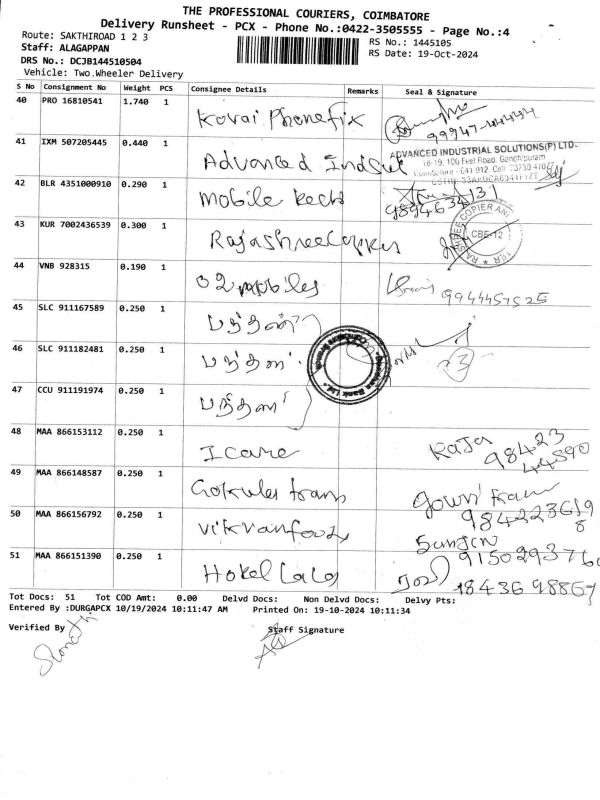 THE PROFESSIONAL COURIERS, COIMBATORE
Delivery Runsheet - PCX - Phone No.:0422-3505555 - Page No.:4
Route: SAKTHIROAD 1 2 3
RS No.: 1445105
Staff: ALAGAPPAN
RS Date: 19-Oct-2024
DRS No.: DCJB144510504
Vehicle: Two.Wheeler Delivery
S No Consignment No Weight PCS Consignee Details Remarks Seal & Signature
40 PRO 16810541 1.740 1 Kovai Phonefix
99947-44494
41 IXM 507205445 0.440 1 Advanced Indsut
ADVANCED INDUSTRIAL SOLUTIONS(P) LTD.
18-19, 100 Feet Road, Gandhipuram
42 BLR 4351000910 0.290 1 Mobile
9894634131
43 KUR 7002436539 0.300 1 Rajashree Copier
RAJSHREE COPIER AND
CBE-12
44 VNB 928315 0.190 1 O2 mobiles
9944457525
45 SLC 911167589 0.250 1 பந்தன்
46 SLC 911182481 0.250 1 பந்தன்
47 CCU 911191974 0.250 1 பந்தன்
Bank Ltd.
48 MAA 866153112 0.250 1 Icare Raja
98423
44590
49 MAA 866148587 0.250 1 Gokules trans Gowri
9842236198
50 MAA 866156792 0.250 1 Vikranfoods
9150293760
51 MAA 866151390 0.250 1 Hotel Lala
Tot Docs: 51 Tot COD Amt: 0.00 Delvd Docs: Non Delvd Docs: Delvy Pts:
Entered By :DURGAPCX 10/19/2024 10:11:47 AM Printed On: 19-10-2024 10:11:34
Verified By Staff Signature